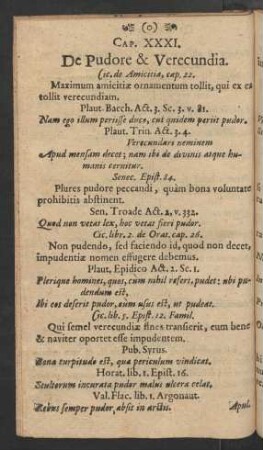 (0)
CAP. XXXI.
De Pudore & Verecundia.
Cic. de Amicitia, cap. 22.
Maximum amicitiæ ornamentum tollit, qui ex ea
tollit verecundiam.
Plaut. Bacch. Act. 3. Sc. 3. v. 81.
Nam ego illum periisse duco, cui quidem periit pudor.
Plaut. Trin. Act. 3. 4.
Verecundari neminem
Apud mensam decet; nam ibi de divinis atque hu-
manis cernitur.
Senec. Epist. 84.
Plures pudore peccandi, quàm bona voluntate
prohibitis abstinent.
Sen. Troade Act. 2, v. 332.
Quod non vetat lex, hoc vetat fieri pudor.
Cic. libr. 2. de Orat. cap. 26.
Non pudendo, sed faciendo id, quod non decet,
impudentiæ nomen effugere debemus.
Plaut, Epidico Act. 2. Sc. 1.
Plerique homines, quos, cum nihil refert, pudet: ubi pu-
dendum est,
Ibi eos deserit pudor, cùm usus est, ut pudeat.
Cic. lib. 5. Epist. 12. Famil.
Qui semel verecundiæ fines transierit, eum bene
& naviter oportet esse impudentem.
Pub. Syrus.
Bona turpitudo est, quæ periculum vindicat.
Horat. lib. 1. Epist. 16.
Stultorum incurata pudor malus ulcera celat.
Val. Flac. lib. 1. Argonaut.
Rebus semper pudor, absit in arctis.
Apul.